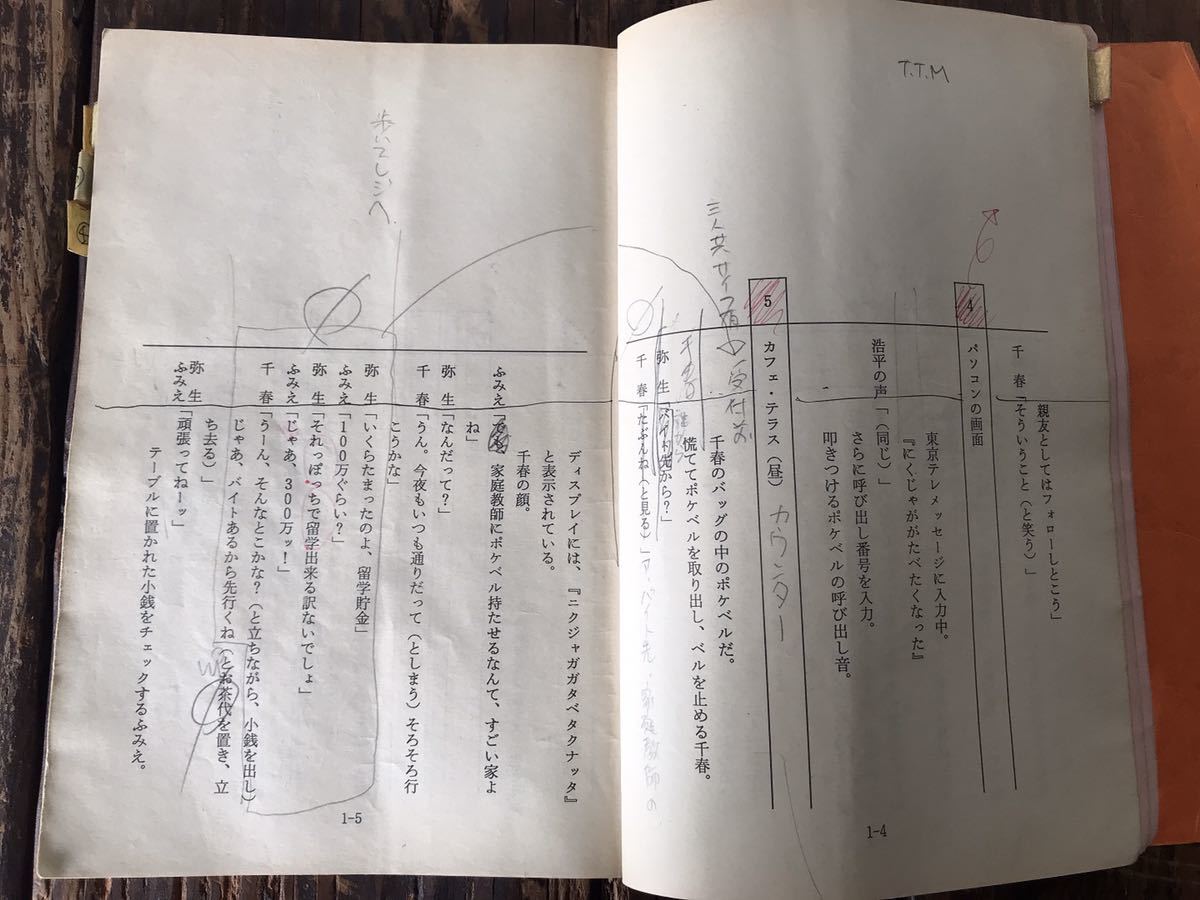 T.T.M
親友としてはフォローしとこう」
千　春「そういうこと（と笑う）」
4
パソコンの画面
東京テレメッセージに入力中。
『にくじゃががたべたくなった』
浩平の声「（同じ）」
さらに呼び出し番号を入力。
叩きつけるポケベルの呼び出し音。
5
カフェ・テラス（昼）
カウンター
千春のバッグの中のポケベルだ。
慌ててポケベルを取り出し、ベルを止める千春。
弥　生「バイト先から？」
千　春「たぶんね（と見る）」
1-4
ディスプレイには、『ニクジャガガタベタクナッタ』
と表示されている。
千春の顔。
ふみえ「でも、家庭教師にポケベル持たせるなんて、すごい家よ
ね」
弥　生「なんだって？」
千　春「うん。今夜もいつも通りだって（としまう）そろそろ行
こうかな」
歩いてレジへ
弥　生「いくらたまったのよ、留学貯金」
ふみえ「１００万ぐらい？」
弥　生「それっぽっちで留学出来る訳ないでしょ」
ふみえ「じゃあ、３００万ッ！」
千　春「うーん、そんなとこかな？（と立ちながら、小銭を出し）
じゃあ、バイトあるから先行くね（とお茶代を置き、立
ち去る）」
弥　生
ふみえ「頑張ってねーッ」
テーブルに置かれた小銭をチェックするふみえ。
1-5